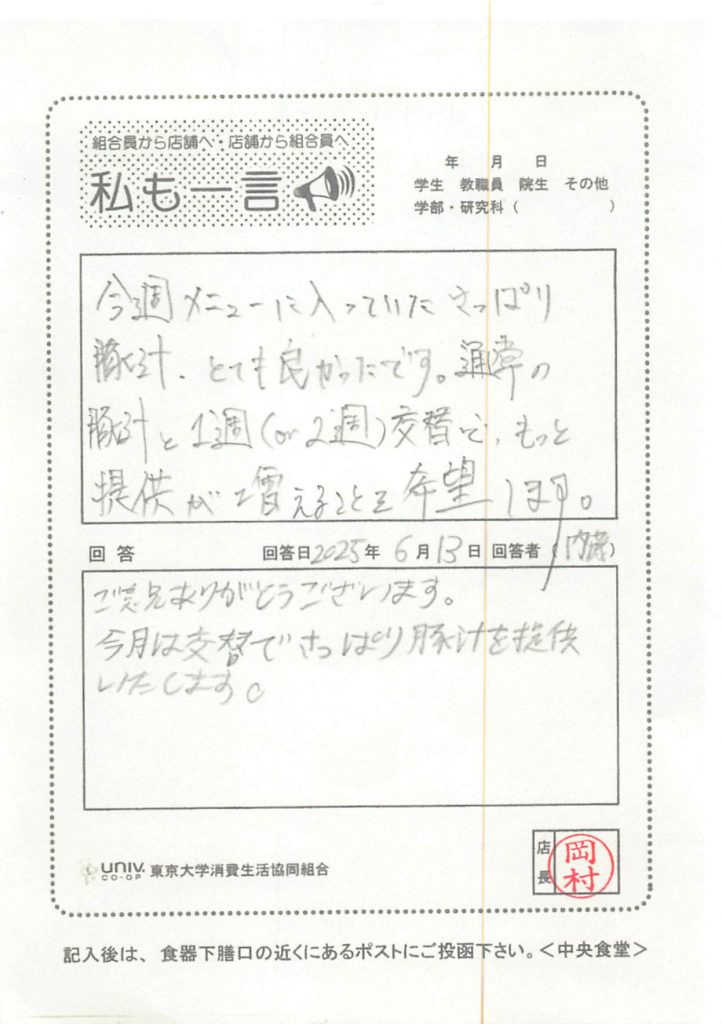 組合員から店舗へ・店舗から組合員へ
私も一言
年 月 日
学生 教職員 院生 その他
学部・研究科( )
今週メニューに入っていたさっぱり
豚汁、とても良かったです。通常の
豚汁と1週(or 2週)交替で、もっと
提供が増えることを希望します。
回答 回答日2025年 6月13日 回答者( )
ご意見ありがとうございます。
今月は交替でさっぱり豚汁を提供
いたします。
店長 岡村
UNIV. CO-OP 東京大学消費生活協同組合
記入後は、食器下膳口の近くにあるポストにご投函下さい。<中央食堂>